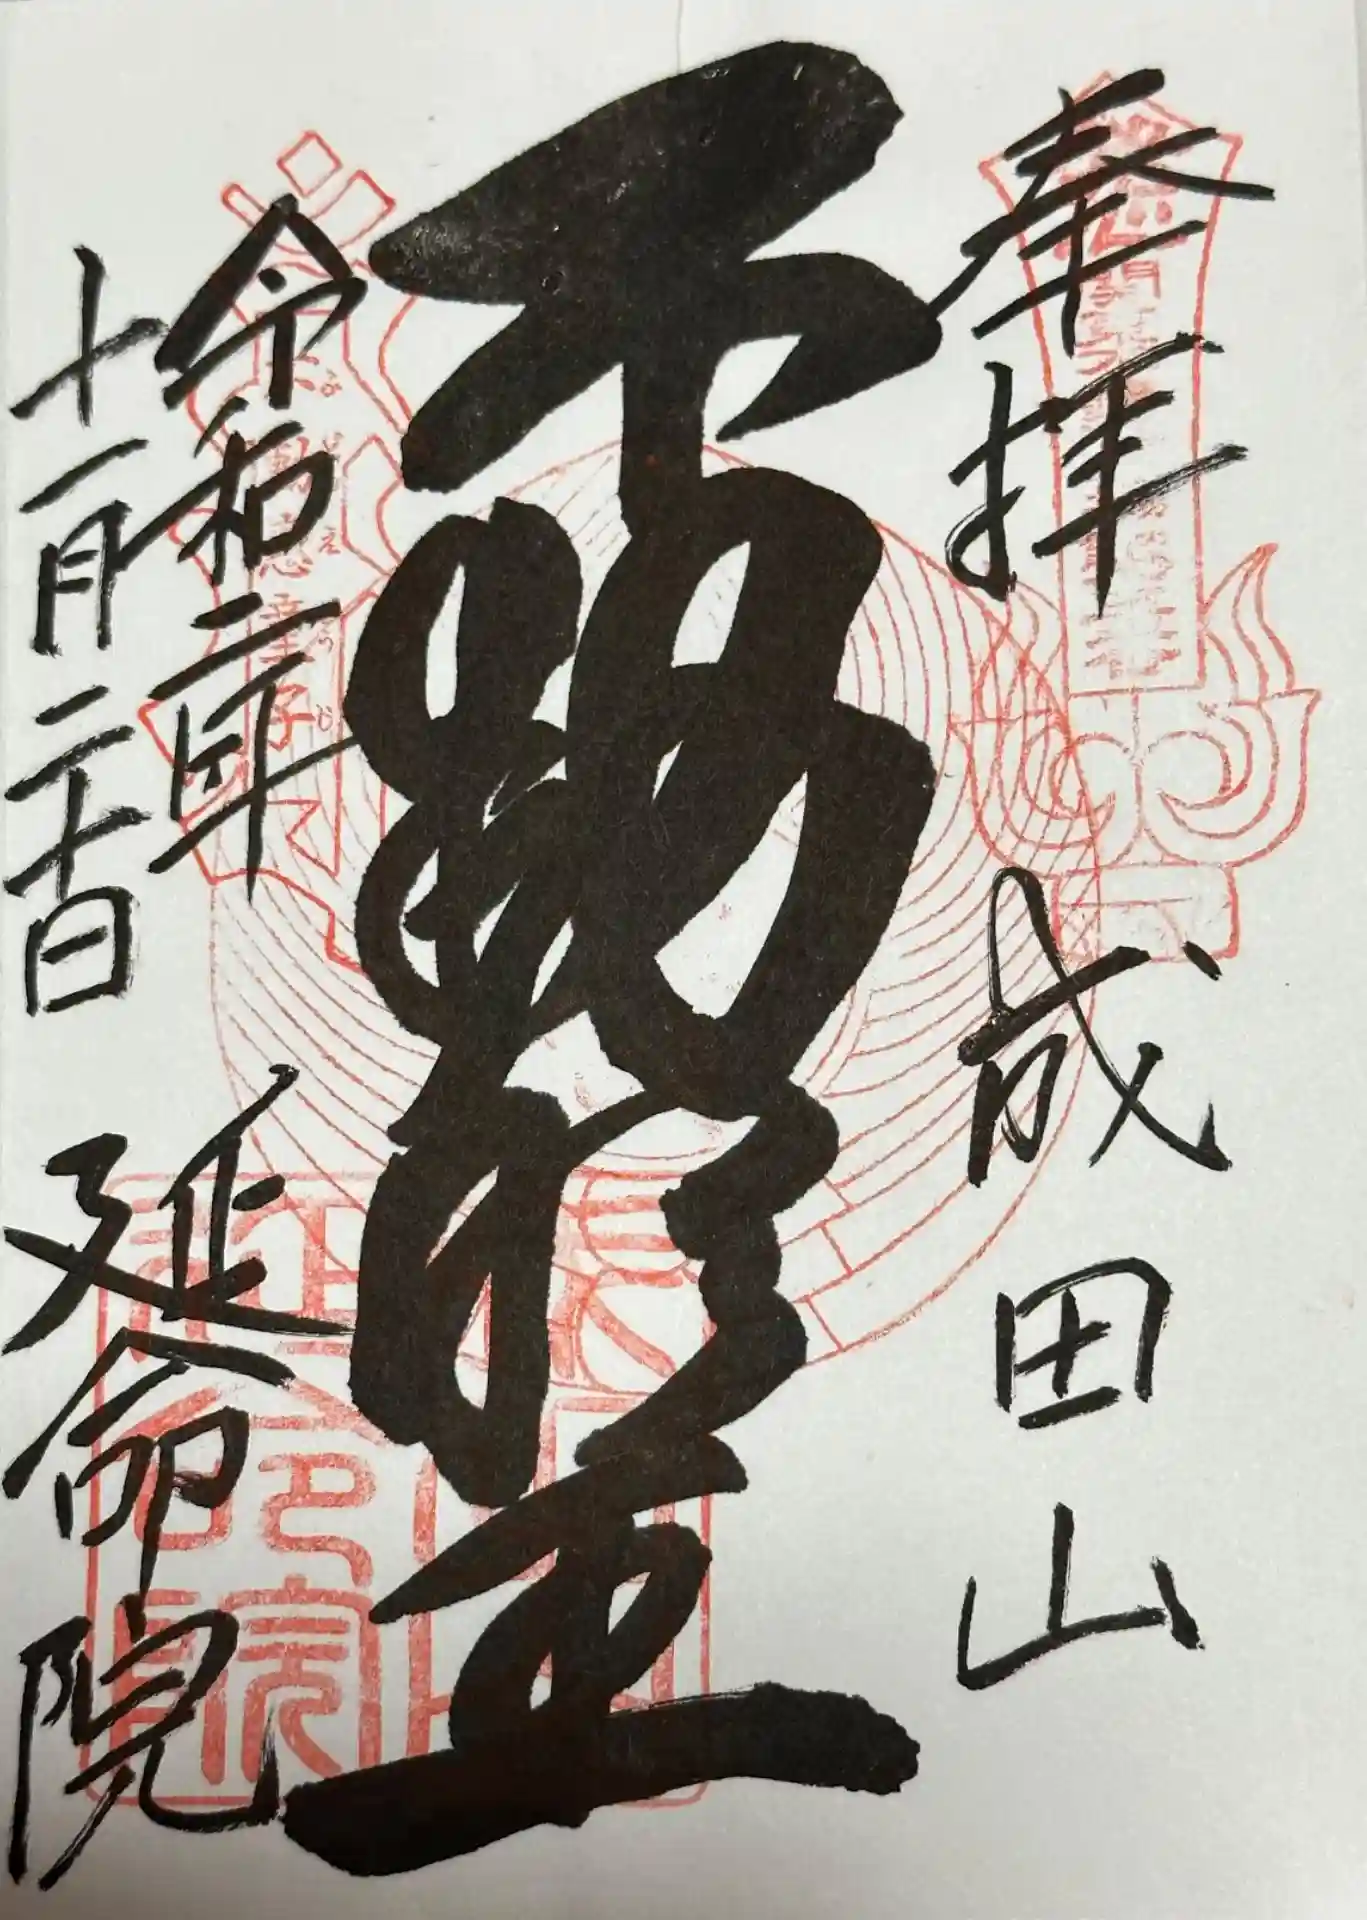 奉拝　成田山
不動明王
令和二年
十一月二十日　延命院